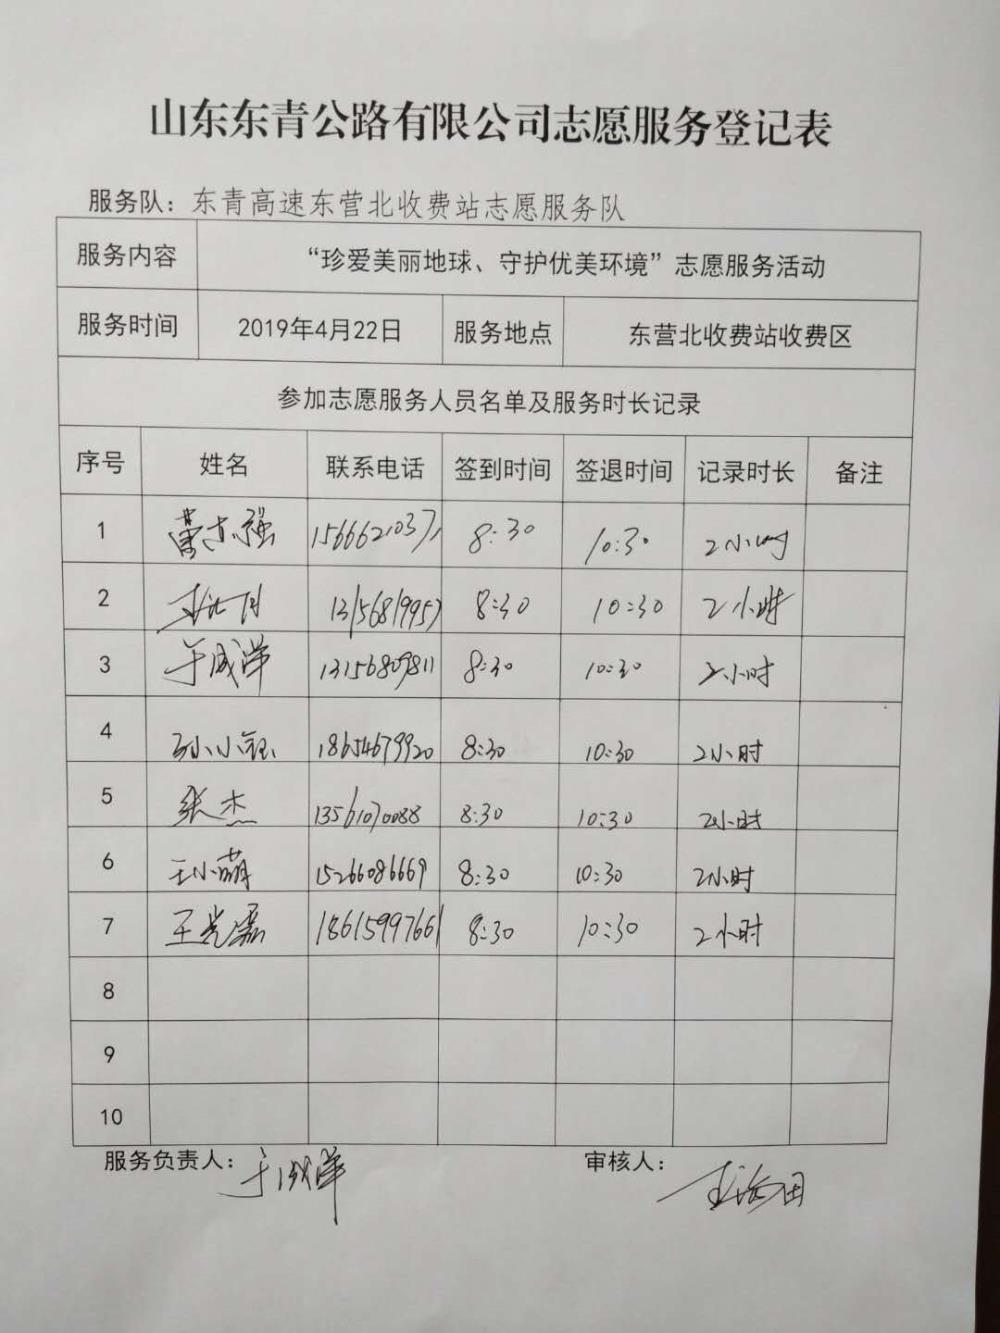 山东东青公路有限公司志愿服务登记表
服务队：东青高速东营北收费站志愿服务队
服务内容 “珍爱美丽地球、守护优美环境”志愿服务活动
服务时间 2019年4月22日 服务地点 东营北收费站收费区
参加志愿服务人员名单及服务时长记录
序号 姓名 联系电话 签到时间 签退时间 记录时长 备注
1 15666210371 8:30 10:30 2小时
2 13156819957 8:30 10:30 2小时
3 于成洋 13156809811 8:30 10:30 2小时
4 孙小钰 18654679920 8:30 10:30 2小时
5 张杰 13561070088 8:30 10:30 2小时
6 王小萌 15266086669 8:30 10:30 2小时
7 王光磊 18615997661 8:30 10:30 2小时
8
9
10
服务负责人：于成洋 审核人：